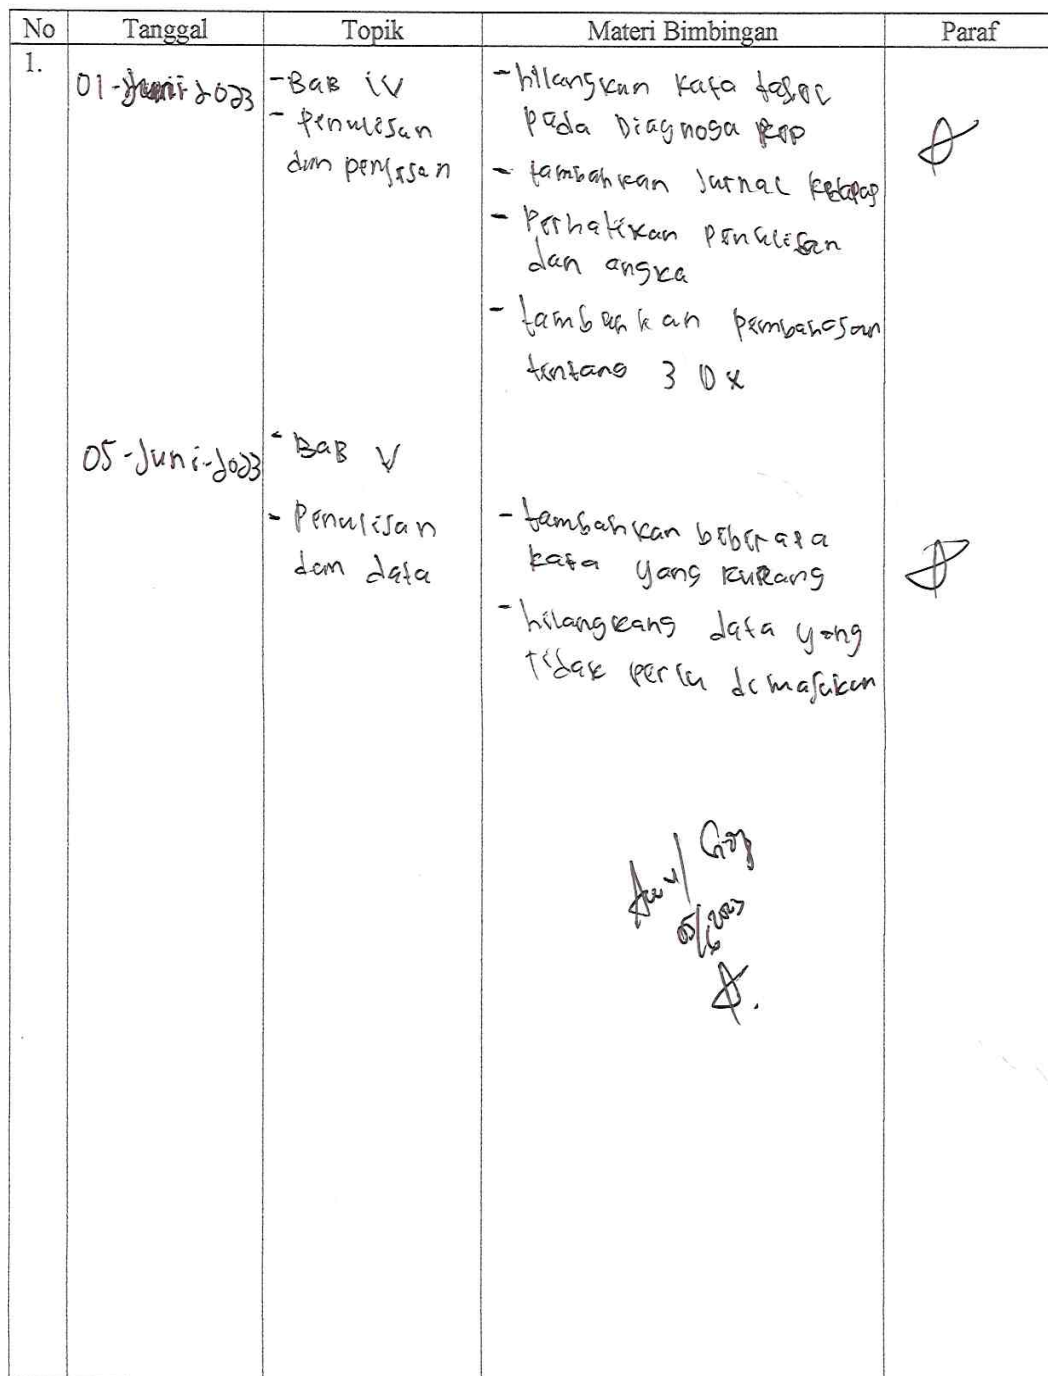 No Tanggal Topik Materi Bimbingan Paraf
1.
01-Juni-2023
-Bab IV
- Penulisan
dan
- hilangkan kata
pada Diagnosa
- tambahkan Jurnal
- Perhatikan Penulisan
dan angka
- tambahkan pembahasan
tentang 3 Dx
05-Juni-2023
- Bab V
- Penulisan
dan data
- tambahkan beberapa
kata yang kurang
- hilangkang data yang
tidak perlu dimasukan
05/6 2023